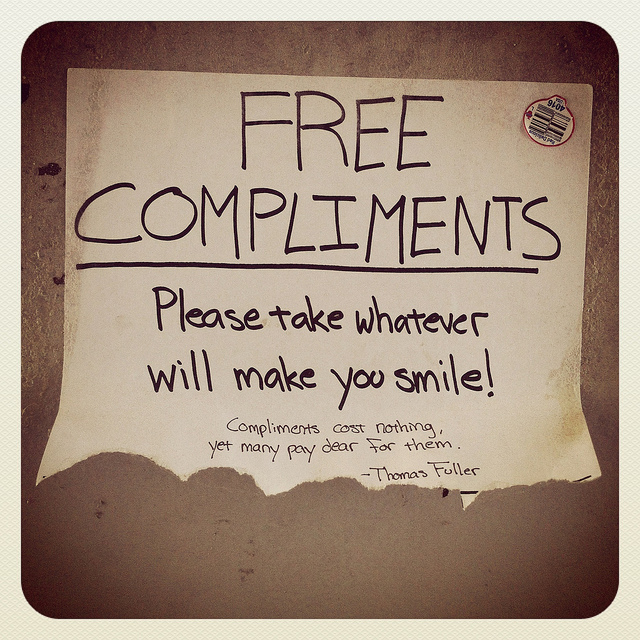 FREE
COMPLIMENTS
Please take whatever
will make you smile!
Compliments cost nothing,
yet many pay dear for them.
-Thomas Fuller
4016